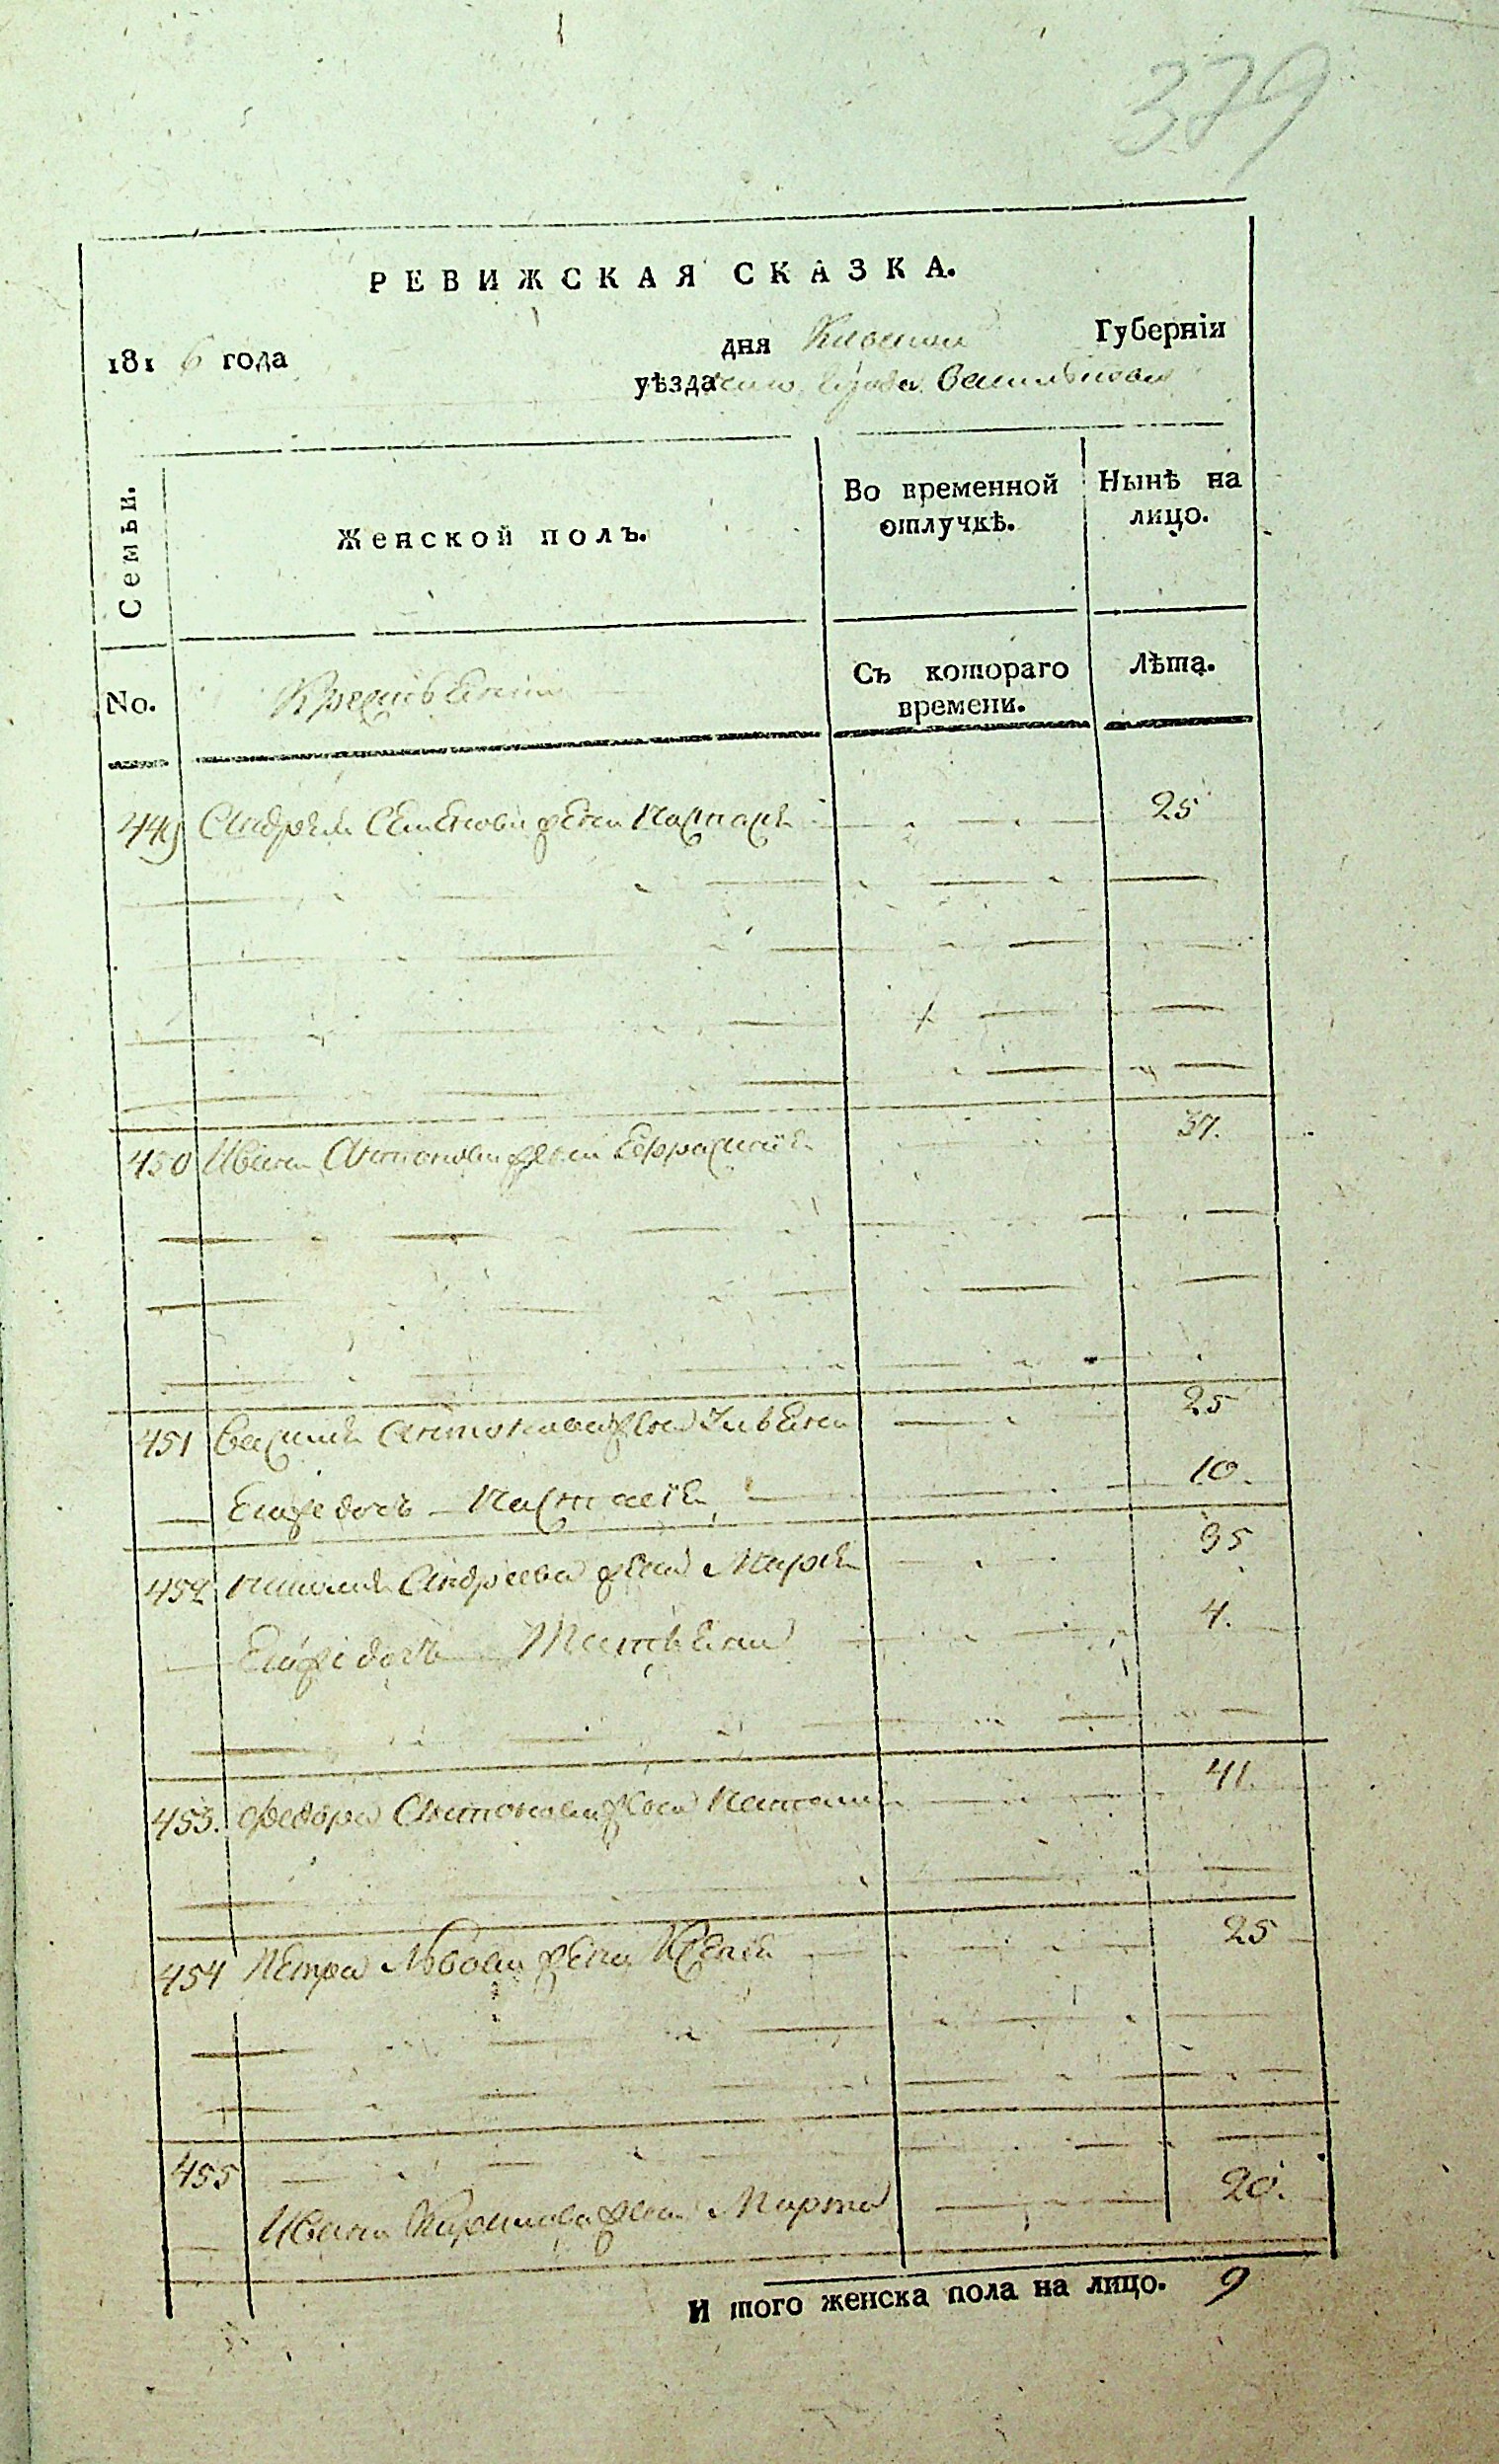 379
РЕВИЖСКАЯ СКАЗКА.
181 6 года дня Киевской Губернїи
уѣзда города Василькова
Семьи.
Женской полъ.
Во временной отлучкѣ.
Нынѣ на лицо.
No.
Съ котораго времени.
лѣта.
449 Андрея Семенова жена Настася 25
450 Ивана Антонова жена Ефросинїя 37.
451 Василия Антонова жена Ульяна 25
Его же дочь Настасїя 10.
452 Андреева жена Марїя 35
Его же дочь Татьяна 4.
453. Федора Антонова жена 41.
454 Петра жена Ксенїя 25
455
Ивана жена Марта 20.
И того женска пола на лицо. 9